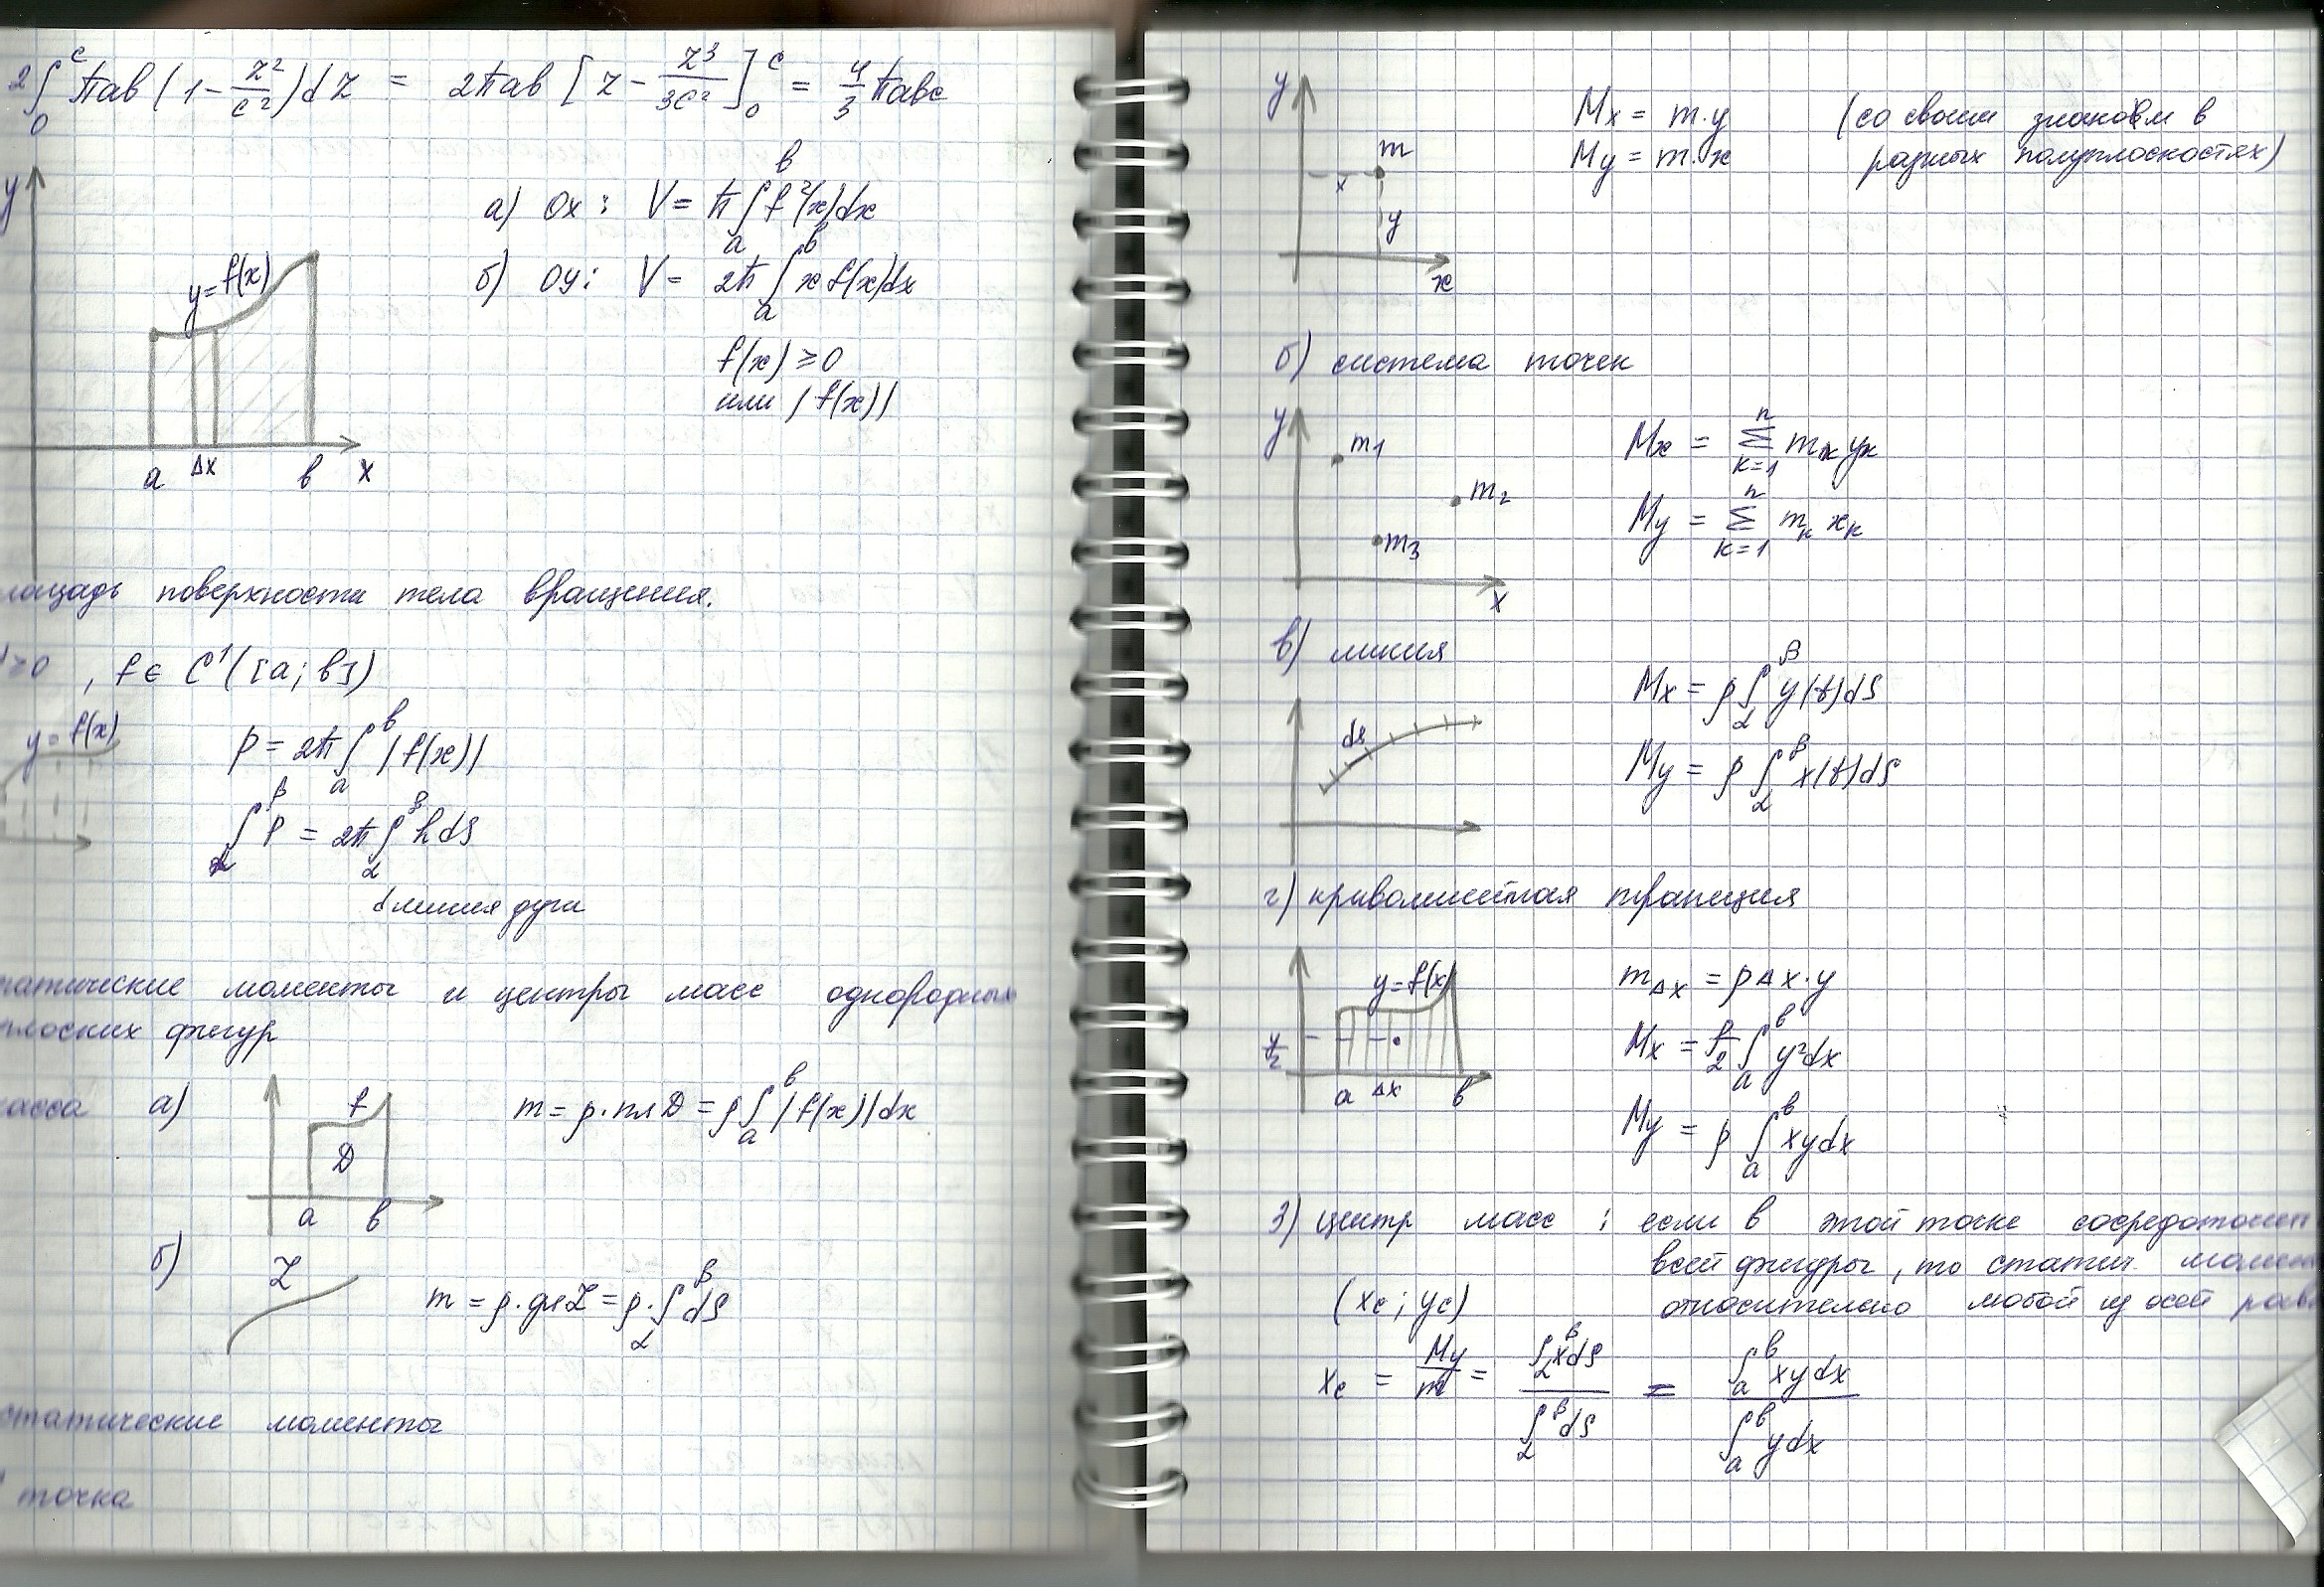 2∫₀ᶜ πab(1 - z²/c²)dz = 2πab[z - z³/3c²]₀ᶜ = 4/3 πabc
y
а) Ox: V = π∫ₐᵇ f²(x)dx
y=f(x)
б) Oy: V = 2π∫ₐᵇ x f(x)dx
f(x) ≥ 0
или |f(x)|
a Δx b x
лощадь поверхности тела вращения.
≥0, f ∈ C¹([a; b])
y=f(x)
p = 2π∫ₐᵇ |f(x)|
∫_α^β p = 2π∫_α^β h dS
длиния дуги
татические моменты и центры масс однородных
плоских фигур
масса а)
f
D
a b
m = ρ·пл D = ρ∫ₐᵇ |f(x)|dx
б)
L
m = ρ·дл L = ρ·∫_α^β dS
статические моменты
точка
y
m
x
y
x
Mx = m·y (со своим знаком в
My = m·x разных полуплоскостях)
б) система точек
y
m1
m2
m3
x
Mx = Σₖ₌₁ⁿ mₖ yₖ
My = Σₖ₌₁ⁿ mₖ xₖ
в) линия
ds
Mx = ρ∫_α^β y(t)dS
My = ρ∫_α^β x(t)dS
г) криволинейная трапеция
y=f(x)
y/2
a Δx b
m_Δx = ρΔx·y
Mx = ρ/2 ∫ₐᵇ y²dx
My = ρ ∫ₐᵇ xydx
3) центр масс : если в этой точке сосредоточен
всей фигуры, то статич. момен
относительно любой из осей рав
(xc; yc)
xc = My/m = ∫_α^β xdS / ∫_α^β dS = ∫ₐᵇ xydx / ∫ₐᵇ ydx